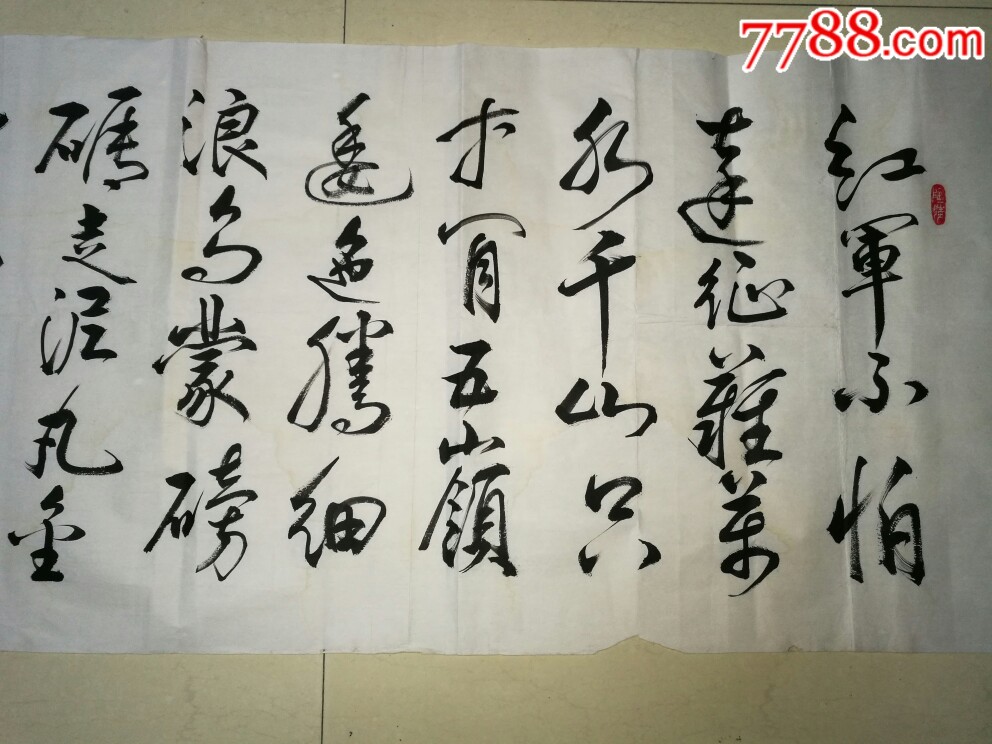 7788.com
红軍不怕
遠征難萬
水千山只
等閒五嶺
逶迤騰細
浪烏蒙磅
礴走泥丸金